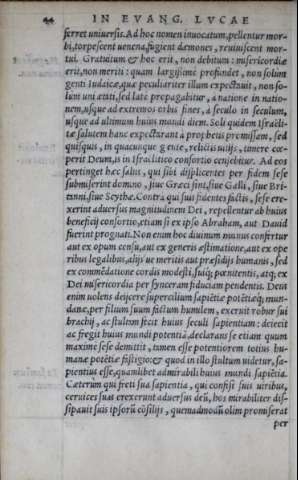 44 IN EVANG. LVCAE
ferret universis. Ad hoc nomen invocatum, pellentur mor-
bi, torpescent venena, fugient dæmones, reviviscent mor-
tui. Gratuitum & hoc erit, non debitum: misericordiæ
erit, non meriti: quam largissime profundet, non solum
genti Iudaicæ, quæ peculiariter illum expectauit, non so-
lum uni ætati, sed late propagabitur, a natione in natio-
nem, usque ad extremos orbis fines, a seculo in seculum,
usque ad ultimum huius mundi diem. Soli quidem Israëli-
tæ salutem hanc expectarant a prophetis promissam, sed
quisquis, in quacunque gente, relictis uitijs, timere cœ-
perit Deum, is in Israëlitico consortio censebitur. Ad eos
pertinget hæc salus, qui sibi displicentes per fidem sese
submiserint domino, siue Græci sint, siue Galli, siue Bri-
tanni, siue Scythæ. Contra qui suis fidentes factis, sese ere-
xerint aduersus magnitudinem Dei, repellentur ab huius
beneficij consortio, etiam si ex ipso Abraham, aut Dauid
fuerint prognati. Non enim hoc diuinum munus confertur
aut ex opum censu, aut ex generis æstimatione, aut ex ope
ribus legalibus, alijsue meritis aut præsidijs humanis, sed
ex commēdatione cordis modesti, suiq; pœnitentis, atq; ex
Dei misericordia per synceram fiduciam pendentis. Deus
enim uolens deijcere supercilium sapiētiæ potētiæq; mun-
danæ, per filium suum factum humilem, exeruit robur sui
brachij, ac stultam fecit huius seculi sapientiam: deiecit
ac fregit huius mundi potentiā, declarans se etiam quum
maxime sese demittit, tamen esse potentiorem totius hu-
manæ potētiæ fastigio: & quod in illo stultum uidetur, sa-
pientius esse, quamlibet admirabili huius mundi sapiētia.
Cæterùm qui freti sua sapientia, qui confisi suis uiribus,
ceruices suas erexerunt aduersus deū, hos mirabiliter dis-
sipauit suis ipsorū cōsilijs, quemadmodū olim promiserat
per